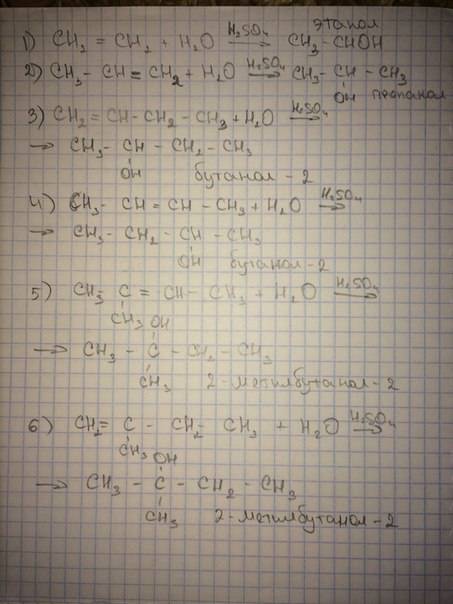 этанол
1) CH2 = CH2 + H2O H2SO4 → CH3 - CHOH
2) CH3 - CH = CH2 + H2O H2SO4 → CH3 - CH - CH3
OH пропанол
3) CH2 = CH - CH2 - CH3 + H2O H2SO4 →
→ CH3 - CH - CH2 - CH3
OH бутанол - 2
4) CH3 - CH = CH - CH3 + H2O H2SO4 →
→ CH3 - CH2 - CH - CH3
OH бутанол - 2
5) CH3 C = CH - CH3 + H2O H2SO4 →
CH3 OH
→ CH3 - C - CH2 - CH3
CH3 2 - метилбутанол - 2
6) CH2 = C - CH2 - CH3 + H2O H2SO4 →
CH3 OH
→ CH3 - C - CH2 - CH3
CH3 2 - метилбутанол - 2